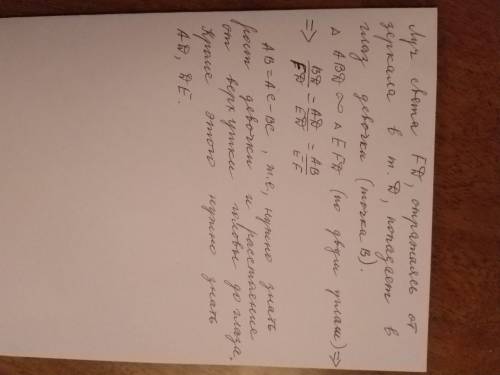 Луч света FD, отражаясь от
зеркала в т. D, попадает в
глаз девочки (точка B).
△ ABD ∞ △ EFD (по двум углам) ⇒
⇒ BD/FD = AD/ED = AB/EF
AB = AC - BC, т.е. нужно знать
рост девочки и расстояние
от верхушки головы до глаза.
Кроме этого нужно знать
AD, DE.